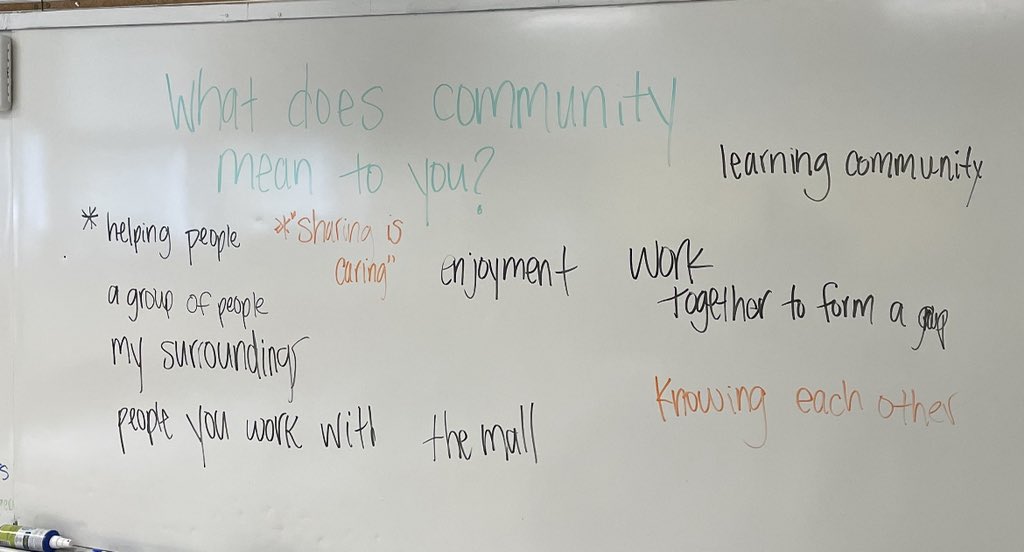 What does community
mean to you?
learning community
* helping people
*"Sharing is
caring"
enjoyment
work
together to form a group
a group of people
my surroundings
Knowing each other
people you work with
the mall